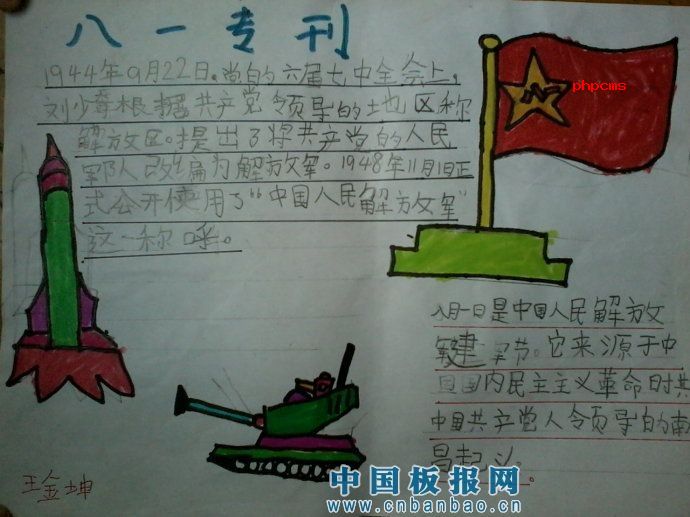 八一专刊
1944年9月22日。党的六届七中全会上，
刘少奇根据共产党领导的地区称
解放区。提出了将共产党的人民
军队改编为解放军。1948年11月1日正
式公开使用了“中国人民解放军”
这一称呼。
phpcms
八月一日是中国人民解放
军建军节。它来源于中
国国内民主主义革命时共
中国共产党人领导的南
昌起义。
王金坤
中国板报网
www.cnbanbao.cn